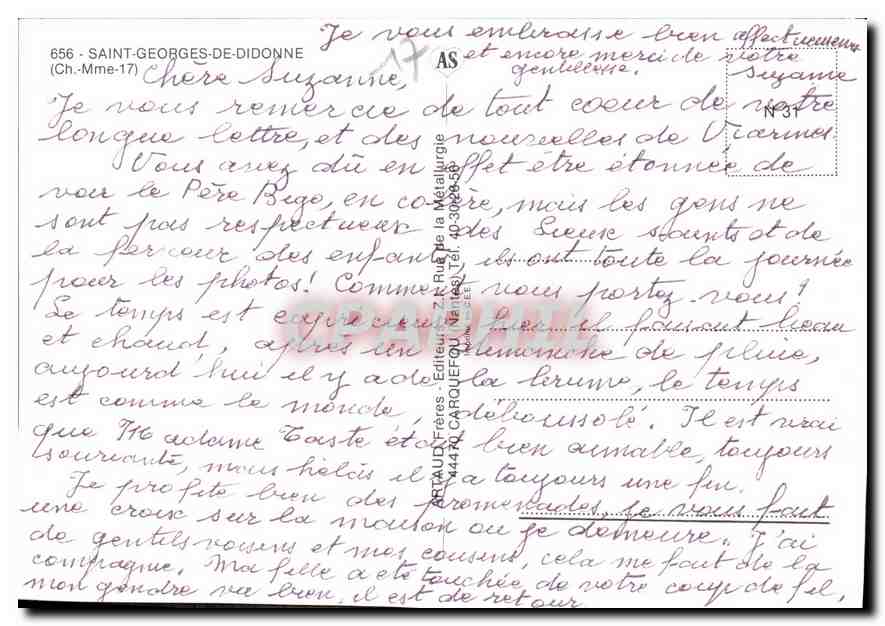 656 - SAINT-GEORGES-DE-DIDONNE
(Ch.-Mme-17)
17
AS
N 31
Chère Suzanne,
Je vous remercie de tout coeur de votre
longue lettre, et des nouvelles de Viarmes
Vous avez dû en effet etre étonnée de
voir le Père Bigo, en colère, mais les gens ne
sont pas respectueux des Lieux saints et de
la ferveur des enfants, ils ont toute la journée
pour les photos! Comment vous portez-vous?
Le temps est capricieux hier il faisait beau
et chaud, après un dimanche de pluie,
aujourd'hui il y a de la brume, le temps
est comme le monde, déboussolé. Il est vrai
que Madame Taste était bien aimable, toujours
souriante, mais hélas il y a toujours une fin.
Je profite bien des promenades, je vous fait
une croix sur la maison ou je demeure. J'ai
de gentils voisins et mes cousins, cela me fait de la
compagnie. Ma fille a été touchée de votre coup de fil,
mon gendre va bien, il est de retour
Je vous embrasse bien affectueusement
et encore merci de votre
gentillesse.
Suzanne
ARTAUD Frères - Editeurs - Z.I. Rue de la Métallurgie
44470 CARQUEFOU (Nantes) Tél. 40-30-28-56
CPAPHIL